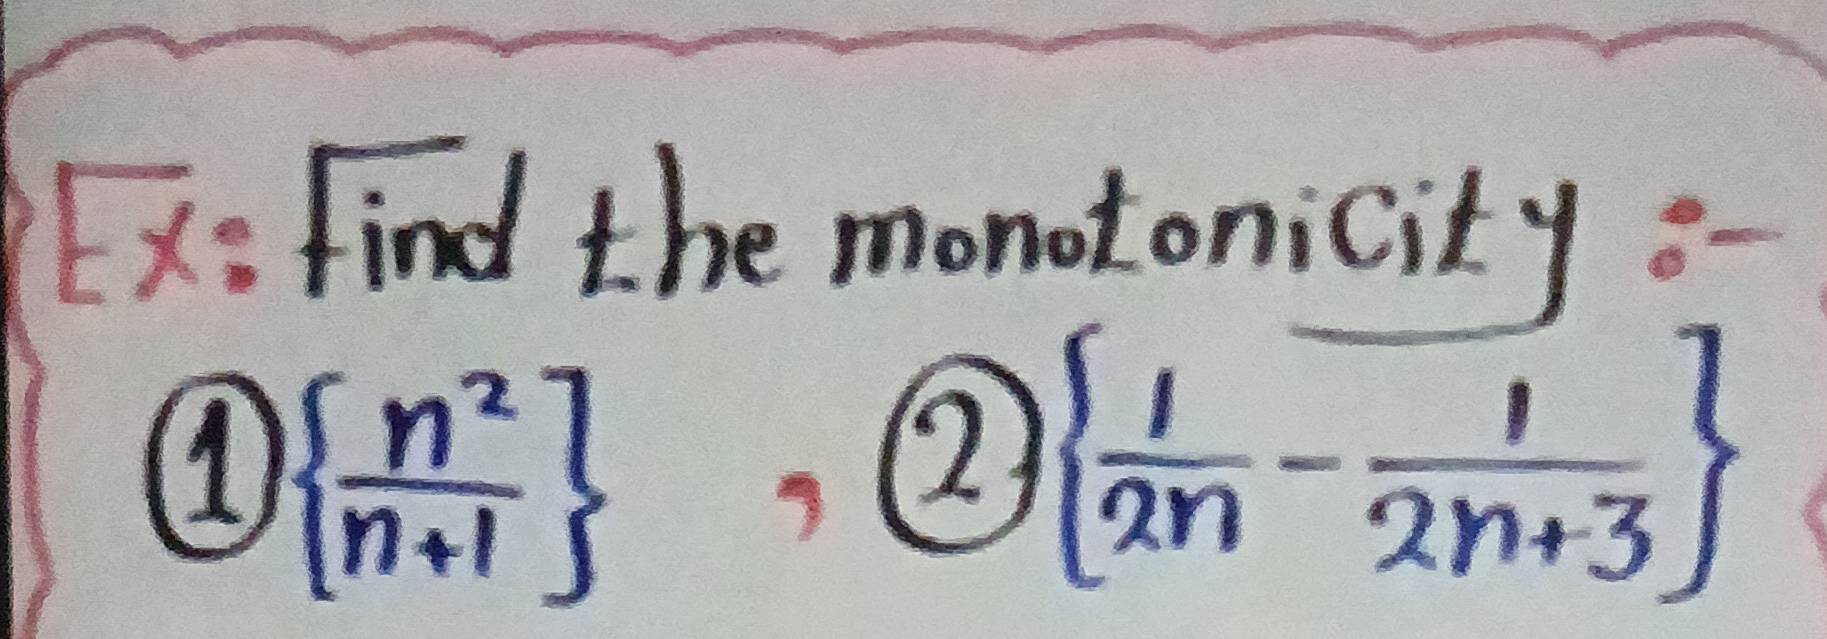 Ex: Find the monotonicity :-
① { n² / n+1 } , ② { 1 / 2n - 1 / 2n+3 }